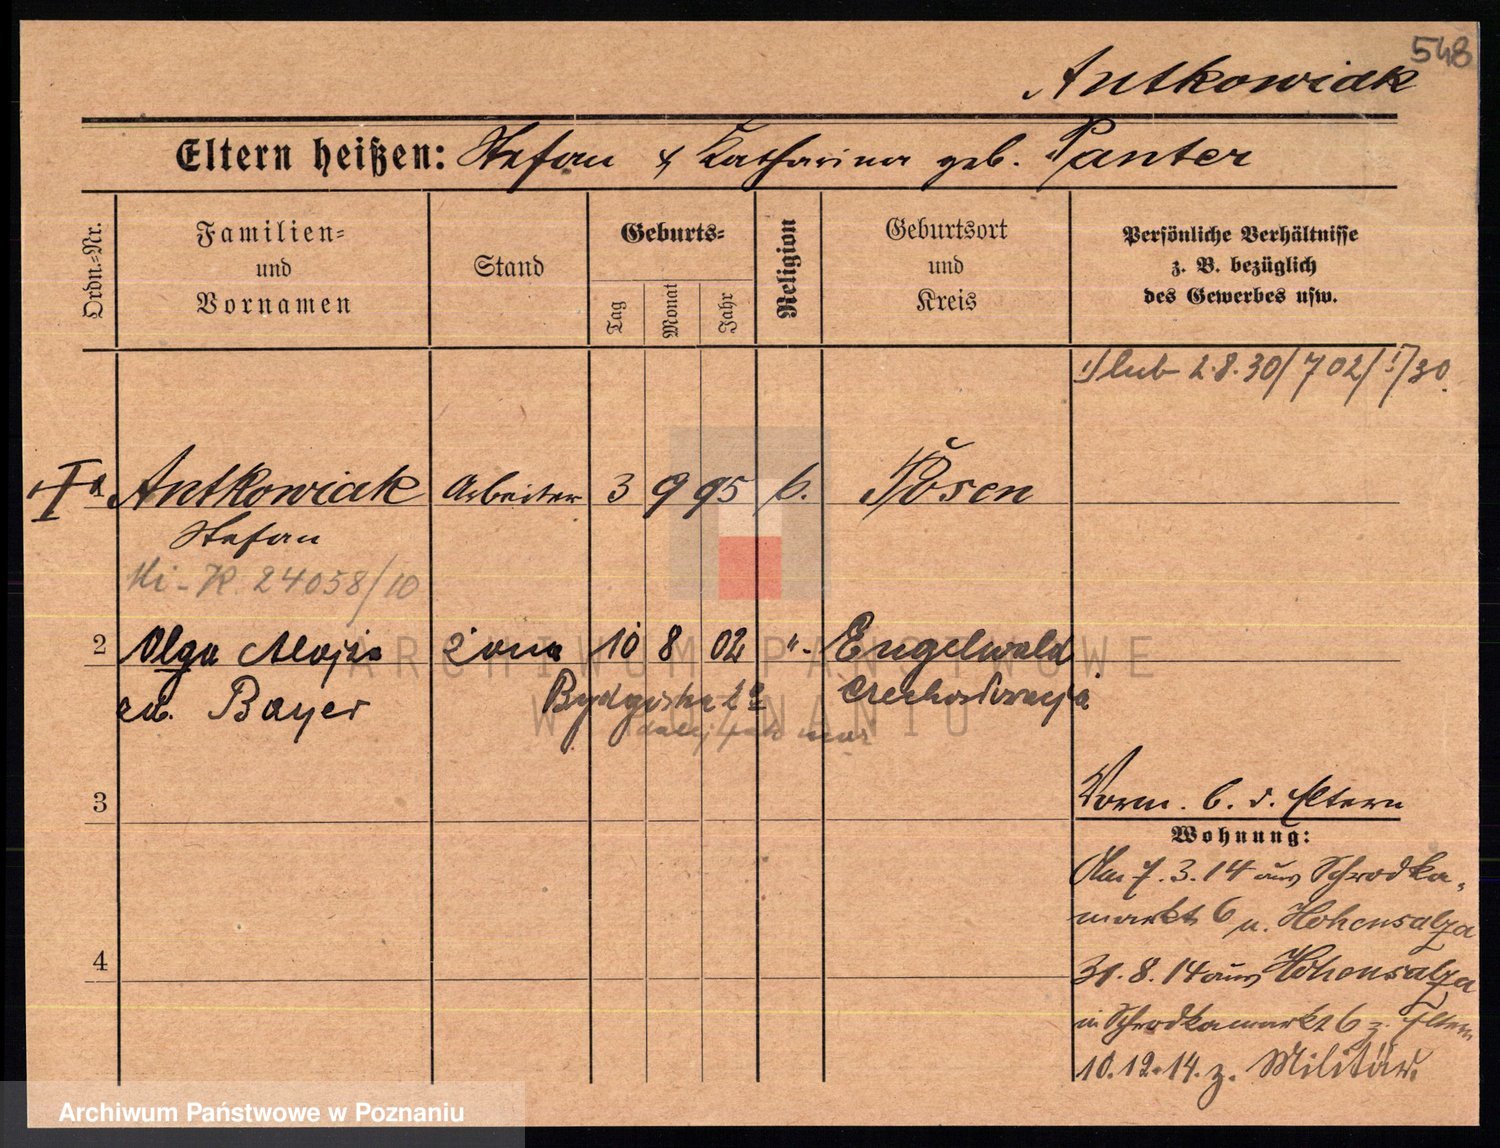 548
Antkowiak
Eltern heißen: Stefan & Katharina geb. Panter
Ordn.=Nr.
Familien=
und
Vornamen
Stand
Geburts=
Tag
Monat
Jahr
Religion
Geburtsort
und
Kreis
Persönliche Verhältnisse
z. B. bezüglich
des Gewerbes usw.
ślub 2.8.30/702/I/30.
Antkowiak Arbeiter 3 9 95 k. Posen
Stefan
24058/10
2 Olga żona 10 8 02 "- Engelwald
Bayer
ARCHIWUM PAŃSTWOWE
W POZNANIU
3
Vorm. b. d. Eltern
Wohnung:
Am 7.3.14 aus Schrodka-
markt 6 n. Hohensalza
4
31.8.14 aus Hohensalza
in Schrodkamarkt 6 z. Eltern
10.12.14. z. Militär.
Archiwum Państwowe w Poznaniu